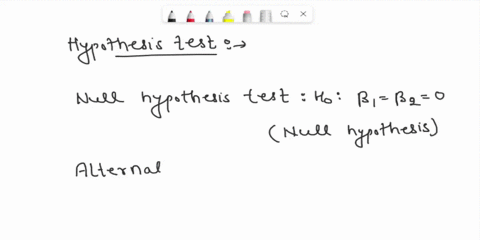 Hypothesis test :→
Null hypothesis test : H₀ : β₁ = β₂ = 0
(Null hypothesis)
Alternal